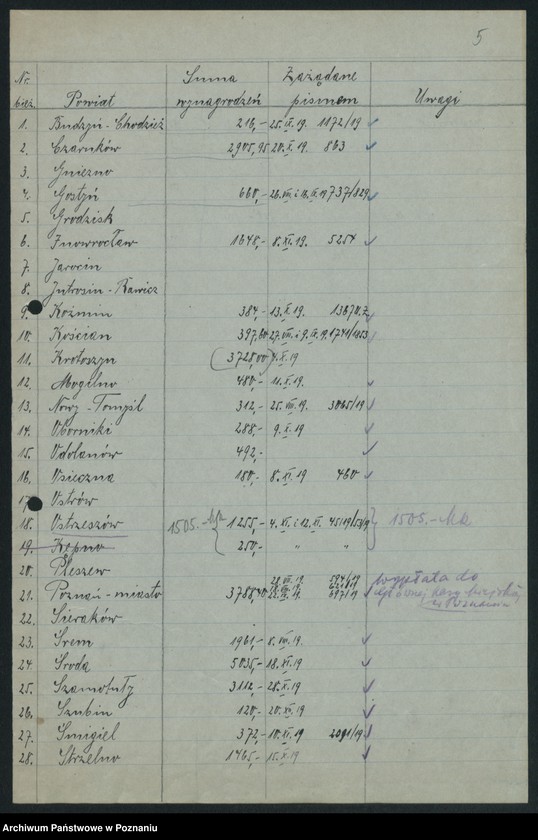 5
Nr. bież. Powiat Suma wynagrodzeń Zażądane pismem Uwagi
1. Budzyń - Chodzież 216,- 25. IX. 19. 1172/19
2. Czarnków 2905,95 20. X. 19. 863
3. Gniezno
4. Gostyń 660,- 26. VIII. i 18. IX. 19 737/829
5. Grodzisk
6. Inowrocław 1648,- 8. XI. 19. 5254
7. Jarocin
8. Jutrosin - Rawicz
9. Koźmin 384,- 13. X. 19.
10. Kościan 397,60 27. VIII. i 9. IX. 19.
11. Krotoszyn (3728,00) 4. X. 19
12. Mogilno 480,- 11. X. 19.
13. Nowy - Tomyśl 312,- 25. VIII. 19. 3065/19
14. Oborniki 288,- 9. X. 19
15. Odolanów 492,-
16. Osieczna 180,- 8. XI. 19 460
17. Ostrów
18. Ostrzeszów 1505.- 1255,- 4. XI. i 12. XI. 45/19/53/19 1505.- Mk
19. Kępno 250,- " "
20. Pleszew
21. Poznań - miasto 3788,40 wypłata do
w Poznaniu
22. Sieraków
23. Śrem 1961,- 8. VIII. 19.
24. Środa 5035,- 18. XI. 19
25. Szamotuły 3112,- 28. X. 19
26. Szubin 120,- 20. VII. 19
27. Śmigiel 372,- 10. XI. 19 2091/19
28. Strzelno 1465,- 15. X. 19
Archiwum Państwowe w Poznaniu